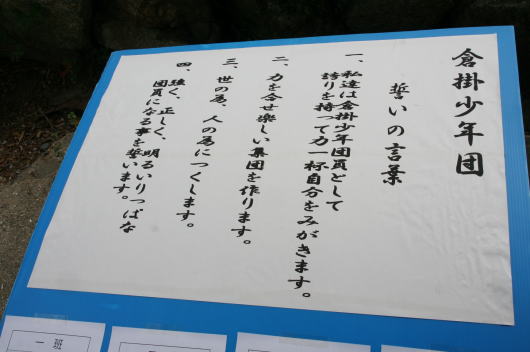 倉掛少年団
誓いの言葉
一、私達は倉掛少年団員として
誇りを持って力一杯自分をみがきます。
二、力を合せ楽しい集団を作ります。
三、世の為、人の為につくします。
四、強く、正しく、明るいりっぱな
団員になる事を誓います。
一班